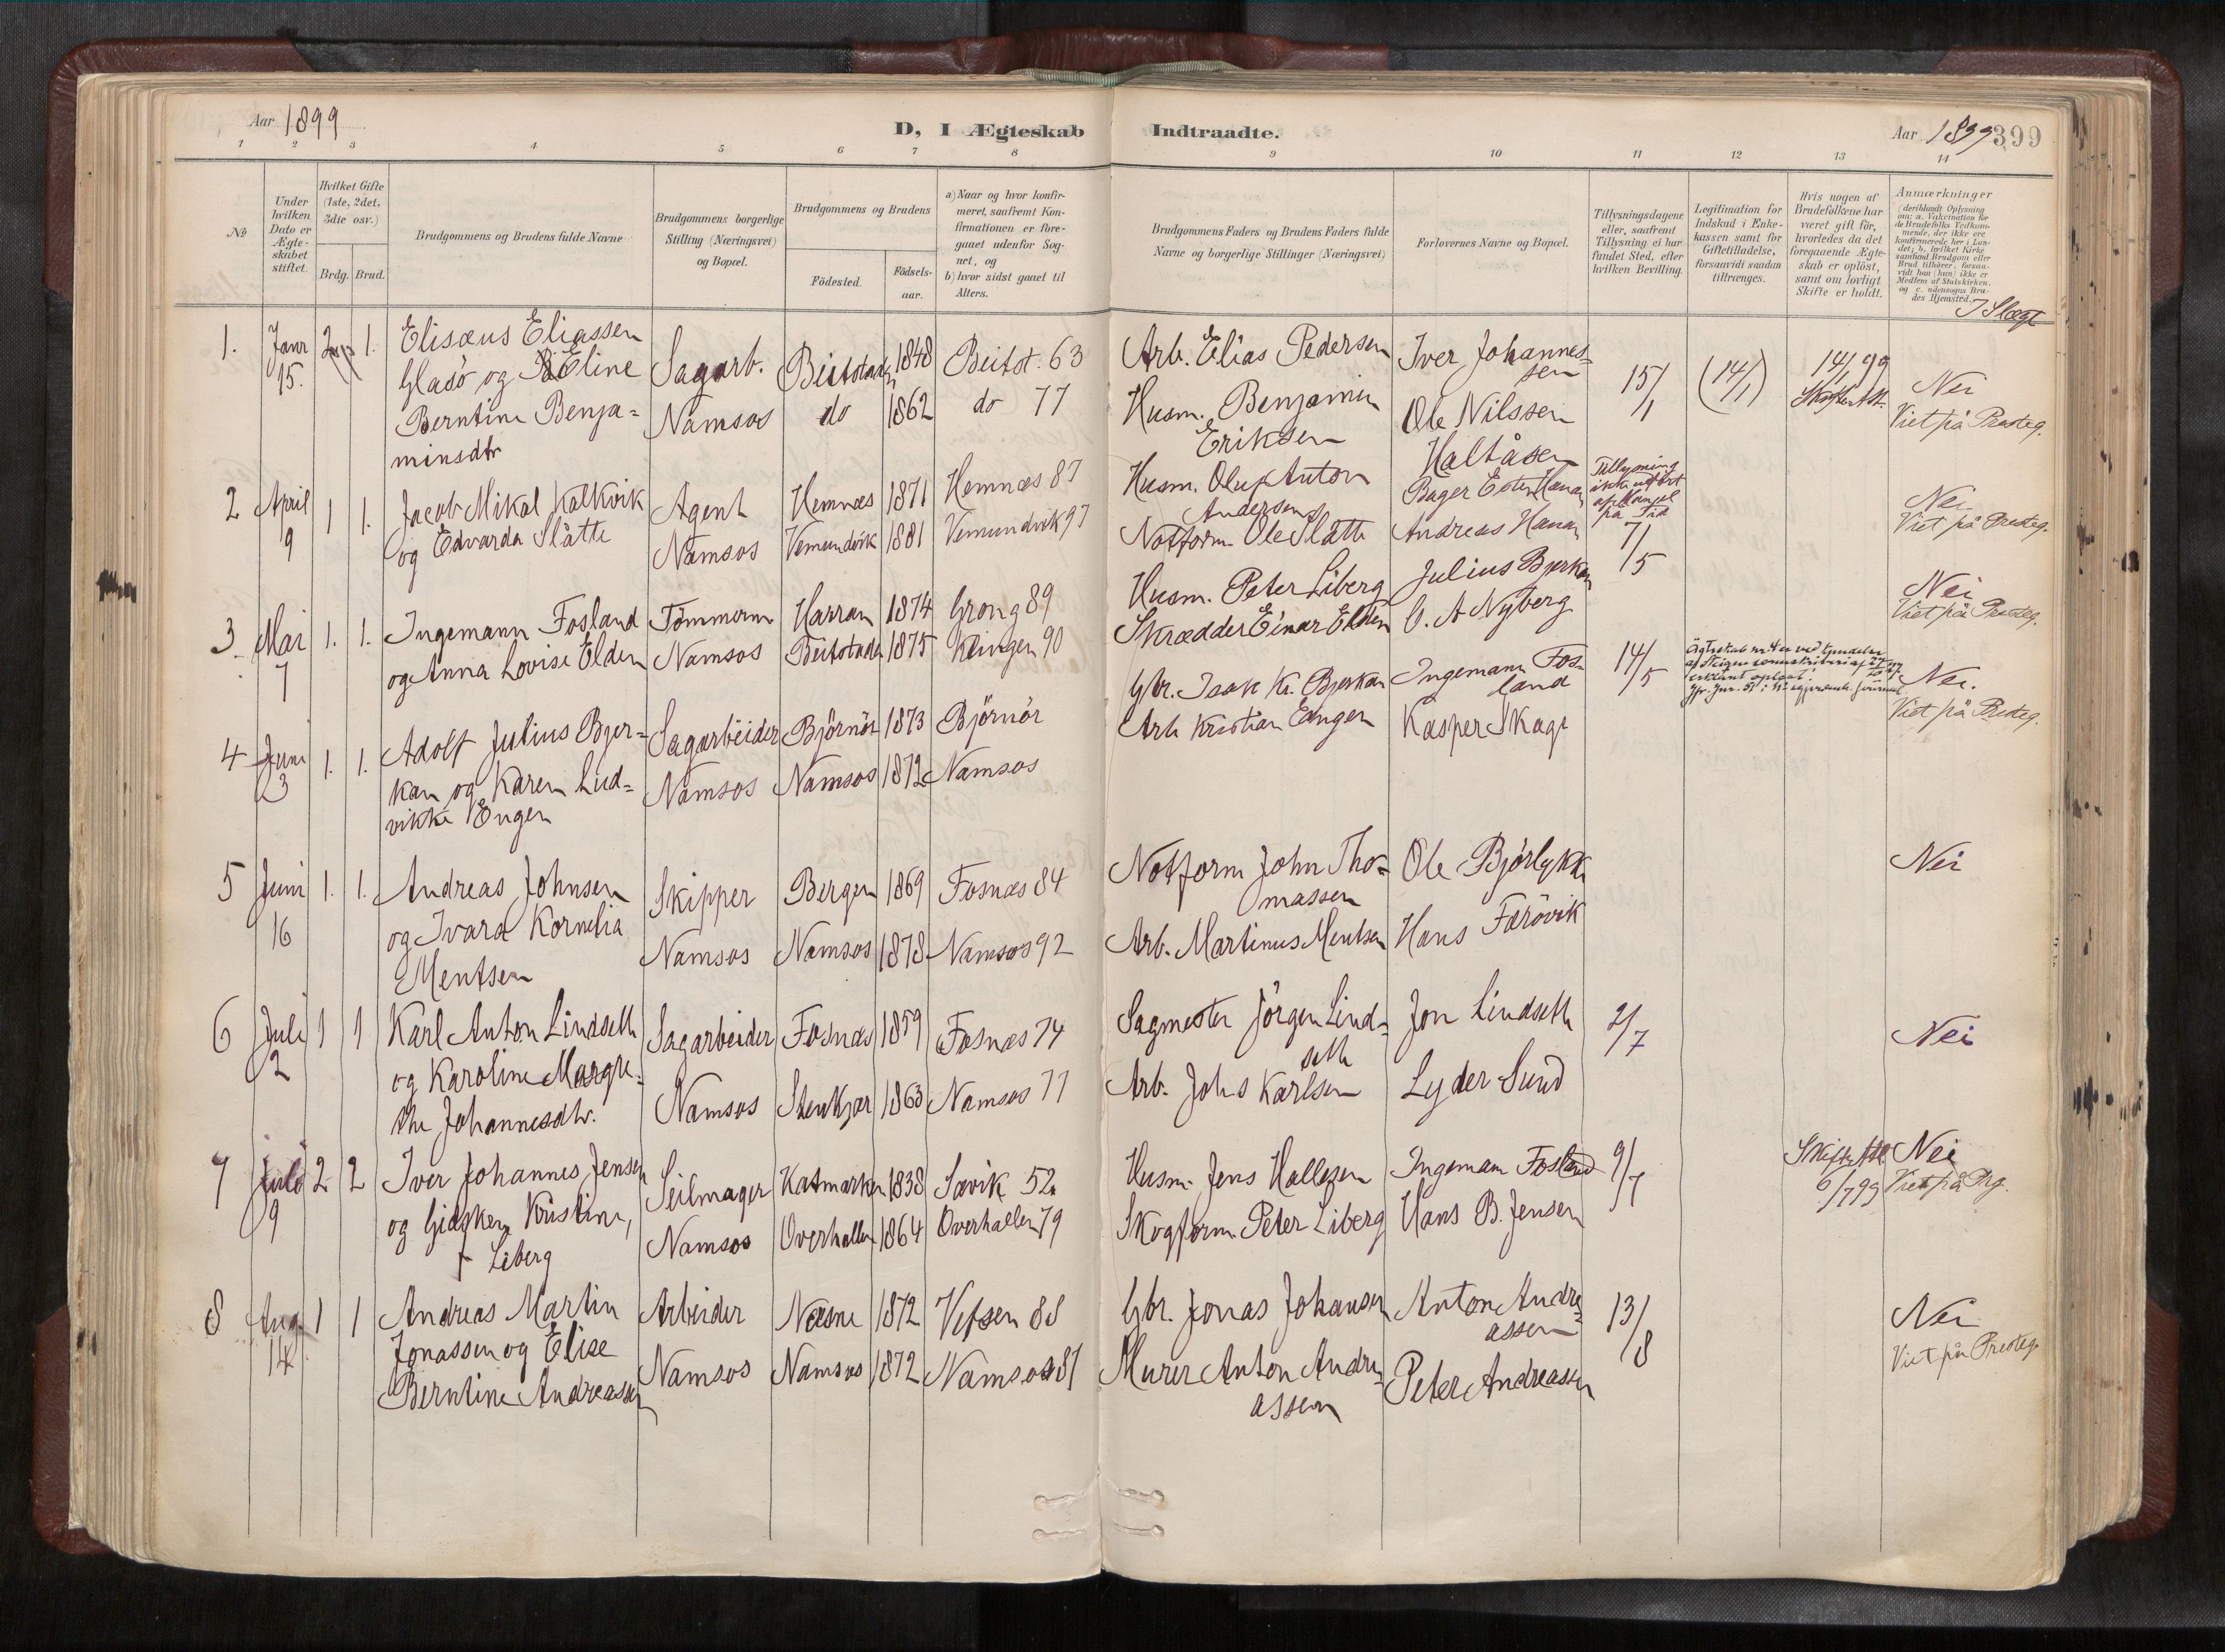 Aar 1899
D, I Ægteskab Indtraadte.
Aar 1899 399
1 2 3 4 5 6 7 8 9 10 11 12 13 14
No
Under hvilken Dato er Ægteskabet stiftet.
Hvilket Gifte (1ste, 2det, 3die osv.)
Brdg. Brud.
Brudgommens og Brudens fulde Navne
Brudgommens borgerlige Stilling (Næringsvei) og Bopæl.
Brudgommens og Brudens
Födested.
Födsels-aar.
a) Naar og hvor konfirmeret, saafremt Konfirmationen er foregaaet udenfor Sognet, og
b) hvor sidst gaaet til Alters.
Brudgommens Faders og Brudens Faders fulde Navne og borgerlige Stillinger (Næringsvei)
Forlovernes Navne og Bopæl.
Tillysningsdagene eller, saafremt Tillysning ei har fundet Sted, efter hvilken Bevilling.
Legitimation for Indskud i Enkekassen samt for Giftetilladelse, forsaavidt saadan tiltrænges.
Hvis nogen af Brudefolkene har været gift før, hvorledes da det foregaaende Ægteskab er oplöst, samt om lovligt Skifte er holdt.
Anmærkninger
I Slægt
1. Janr 15. 2 1.
Elisæus Eliassen
Glasö og Eline
Berntine Benja=
minsdtr
Sagarb.
Namsos
Beitstaden 1848 Beitst. 63
do 1862 do 77
Arb. Elias Pedersen
Husm. Benjamin
Eriksen
Iver Johannes=
sen
Ole Nilssen
15/1 (14/1) 14/1 99
Nei
Viet på Presteg.
2 April 9 1 1.
Jacob Mikal Kalkvik
og Edvarda Slåtte
Agent
Namsos
Hemnæs 1871 Hemnæs 87
Vemundvik 1881 Vemundvik 97
Husm. Oluf Anton
Andersen
Notform. Ole Slåtte
Haltåsen
Bager Esten Hanan
Andreas Hanan
Tillysning
ikke udført
af Mangel
på Tid
Nei
Viet på Presteg.
3 Mai 7 1. 1.
Ingemann Fosland
og Anna Lovise Elden
Tömmerm
Namsos
Harran 1874 Grong 89
Beitstaden 1875 Klingen 90
Husm. Peter Liberg
Skrædder Einar Elden
Julius Bjerkan
O. A Nyberg
7/5
Nei
Viet på Presteg.
4 Juni 3 1. 1.
Adolf Julius Bjer=
kan og Karen Lud=
vikke Engen
Sagarbeider
Namsos
Björnör 1873 Björnör
Namsos 1872 Namsos
Gbr. Isak Kr. Bjerkan
Arb Kristian Engen
Ingemann Fos=
land
Kasper Skage
14/5
Nei.
Viet på Presteg.
5 Juni 16 1. 1.
Andreas Johnsen
og Ivara Kornelia
Mentsen
Skipper
Namsos
Bergen 1869 Fosnæs 84
Namsos 1878 Namsos 92
Notform John Tho=
massen
Arb. Martinus Mentsen
Ole Björlykke
Hans Færövik
Nei
6 Juli 2 1 1
Karl Anton Lindseth
og Karoline Margre=
the Johannesdtr.
Sagarbeider
Namsos
Fosnæs 1859 Fosnæs 74
Stenkjær 1863 Namsos 77
Sagmester Jörgen Lind=
seth
Arb. Johs Karlsen
Jon Lindseth
Lyder Sund
2/7
Nei
7 Juli 9 2 2
Iver Johannes Jensen
og Gidsken Kristine,
f Liberg
Seilmager
Namsos
Katmarken 1838 Sævik 52
Overhallen 1864 Overhallen 79
Husm. Jens Hallesen
Skogform. Peter Liberg
Ingemann Fosland
Hans B. Jensen
9/7
Skifteatt.
6/7 99
Nei
Viet på Prg.
8 Aug. 14 1 1
Andreas Martin
Jonassen og Elise
Berntine Andreassen
Arbeider
Namsos
Næsne 1872 Vefsen 88
Namsos 1872 Namsos 87
Gbr. Jonas Johansen
Murer Anton Andre=
assen
Anton Andre=
assen
Peter Andreassen
13/8
Nei
Viet på Presteg.